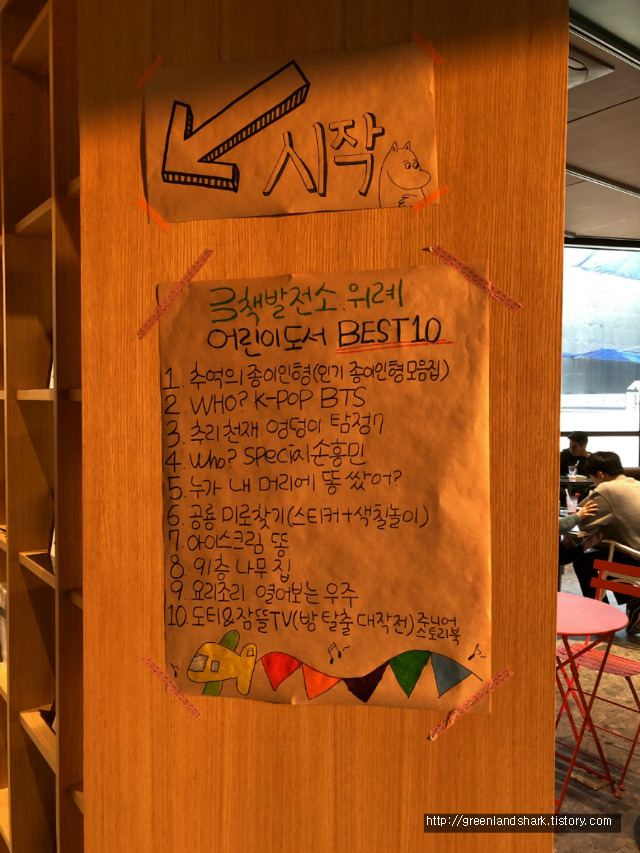 시작
책발전소.위례
어린이도서 BEST10
1. 추억의 종이인형(인기 종이인형모음집)
2. WHO? K-POP BTS
3. 추리천재 엉덩이 탐정7
4. Who? Special손흥민
5. 누가 내 머리에 똥 쌌어?
6. 공룡 미로찾기(스티커+색칠놀이)
7. 아이스크림 똥
8 91층 나무 집
9. 요리조리 열어보는 우주
10. 도티&잠뜰TV(방 탈출 대작전)주니어
스토리북
http://greenlandshark.tistory.com